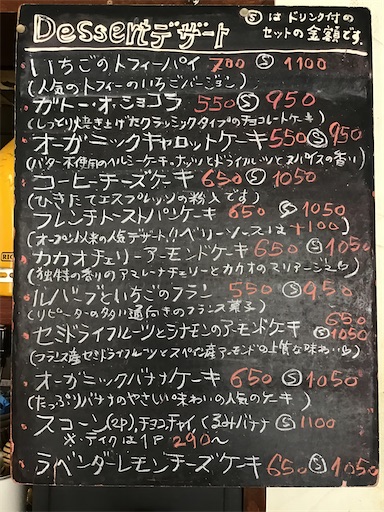 Dessert デザート
Ⓢは ドリンク付の
セットの金額です。
いちごのトフィーパイ 700 Ⓢ 1100
(人気のトフィーのいちごバージョン)
ガトー・オ・ショコラ 550 Ⓢ 950
(しっとり焼き上げたクラッシックタイプのチョコレートケーキ)
オーガニックキャロットケーキ 550 Ⓢ 950
(バター不使用のヘルシーケーキ・ナッツとドライフルーツとスパイスの香り)
コーヒーチーズケーキ 650 Ⓢ 1050
(ひきたてエスプレッソの粉入です)
フレンチトーストパンケーキ 650 Ⓢ 1050
(オープン以来の人気デザート。ベリーソースは +100)
カカオチェリーアーモンドケーキ 650 Ⓢ 1050
(独特の香りのアマレーナチェリーとカカオのマリアージュ)
ルバーブといちごのフラン 550 Ⓢ 950
(リピーターの多い通向きのフランス菓子)
セミドライフルーツとシナモンのアーモンドケーキ 650 Ⓢ 1050
(フランス産セミドライフルーツとスペイン産アーモンドの上質な味わい)
オーガニックバナナケーキ 650 Ⓢ 1050
(たっぷりバナナのやさしい味わいの人気のケーキ)
スコーン(2P)、チョコチャイ、くるみバナナ Ⓢ 1100
※テイクは 1P 290~
ラベンダーレモンチーズケーキ 650 Ⓢ 1050